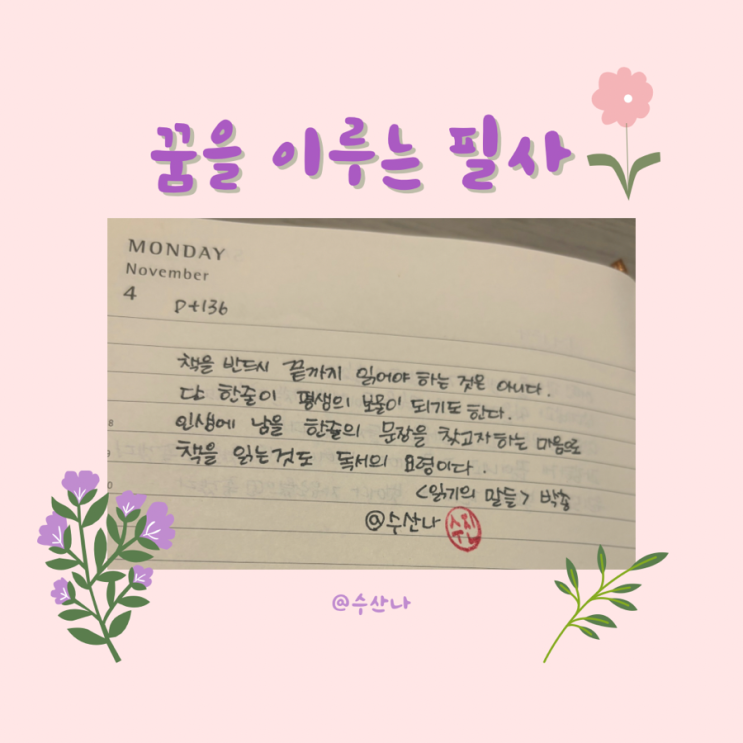 꿈을 이루는 필사
MONDAY
November
4
D+136
책을 반드시 끝까지 읽어야 하는 것은 아니다.
단 한줄이 평생의 보물이 되기도 한다.
인생에 남을 한줄의 문장을 찾고자하는 마음으로
책을 읽는것도 독서의 요령이다.
<읽기의 말들> 박총
@수산나
수진
8
9
0
@수산나